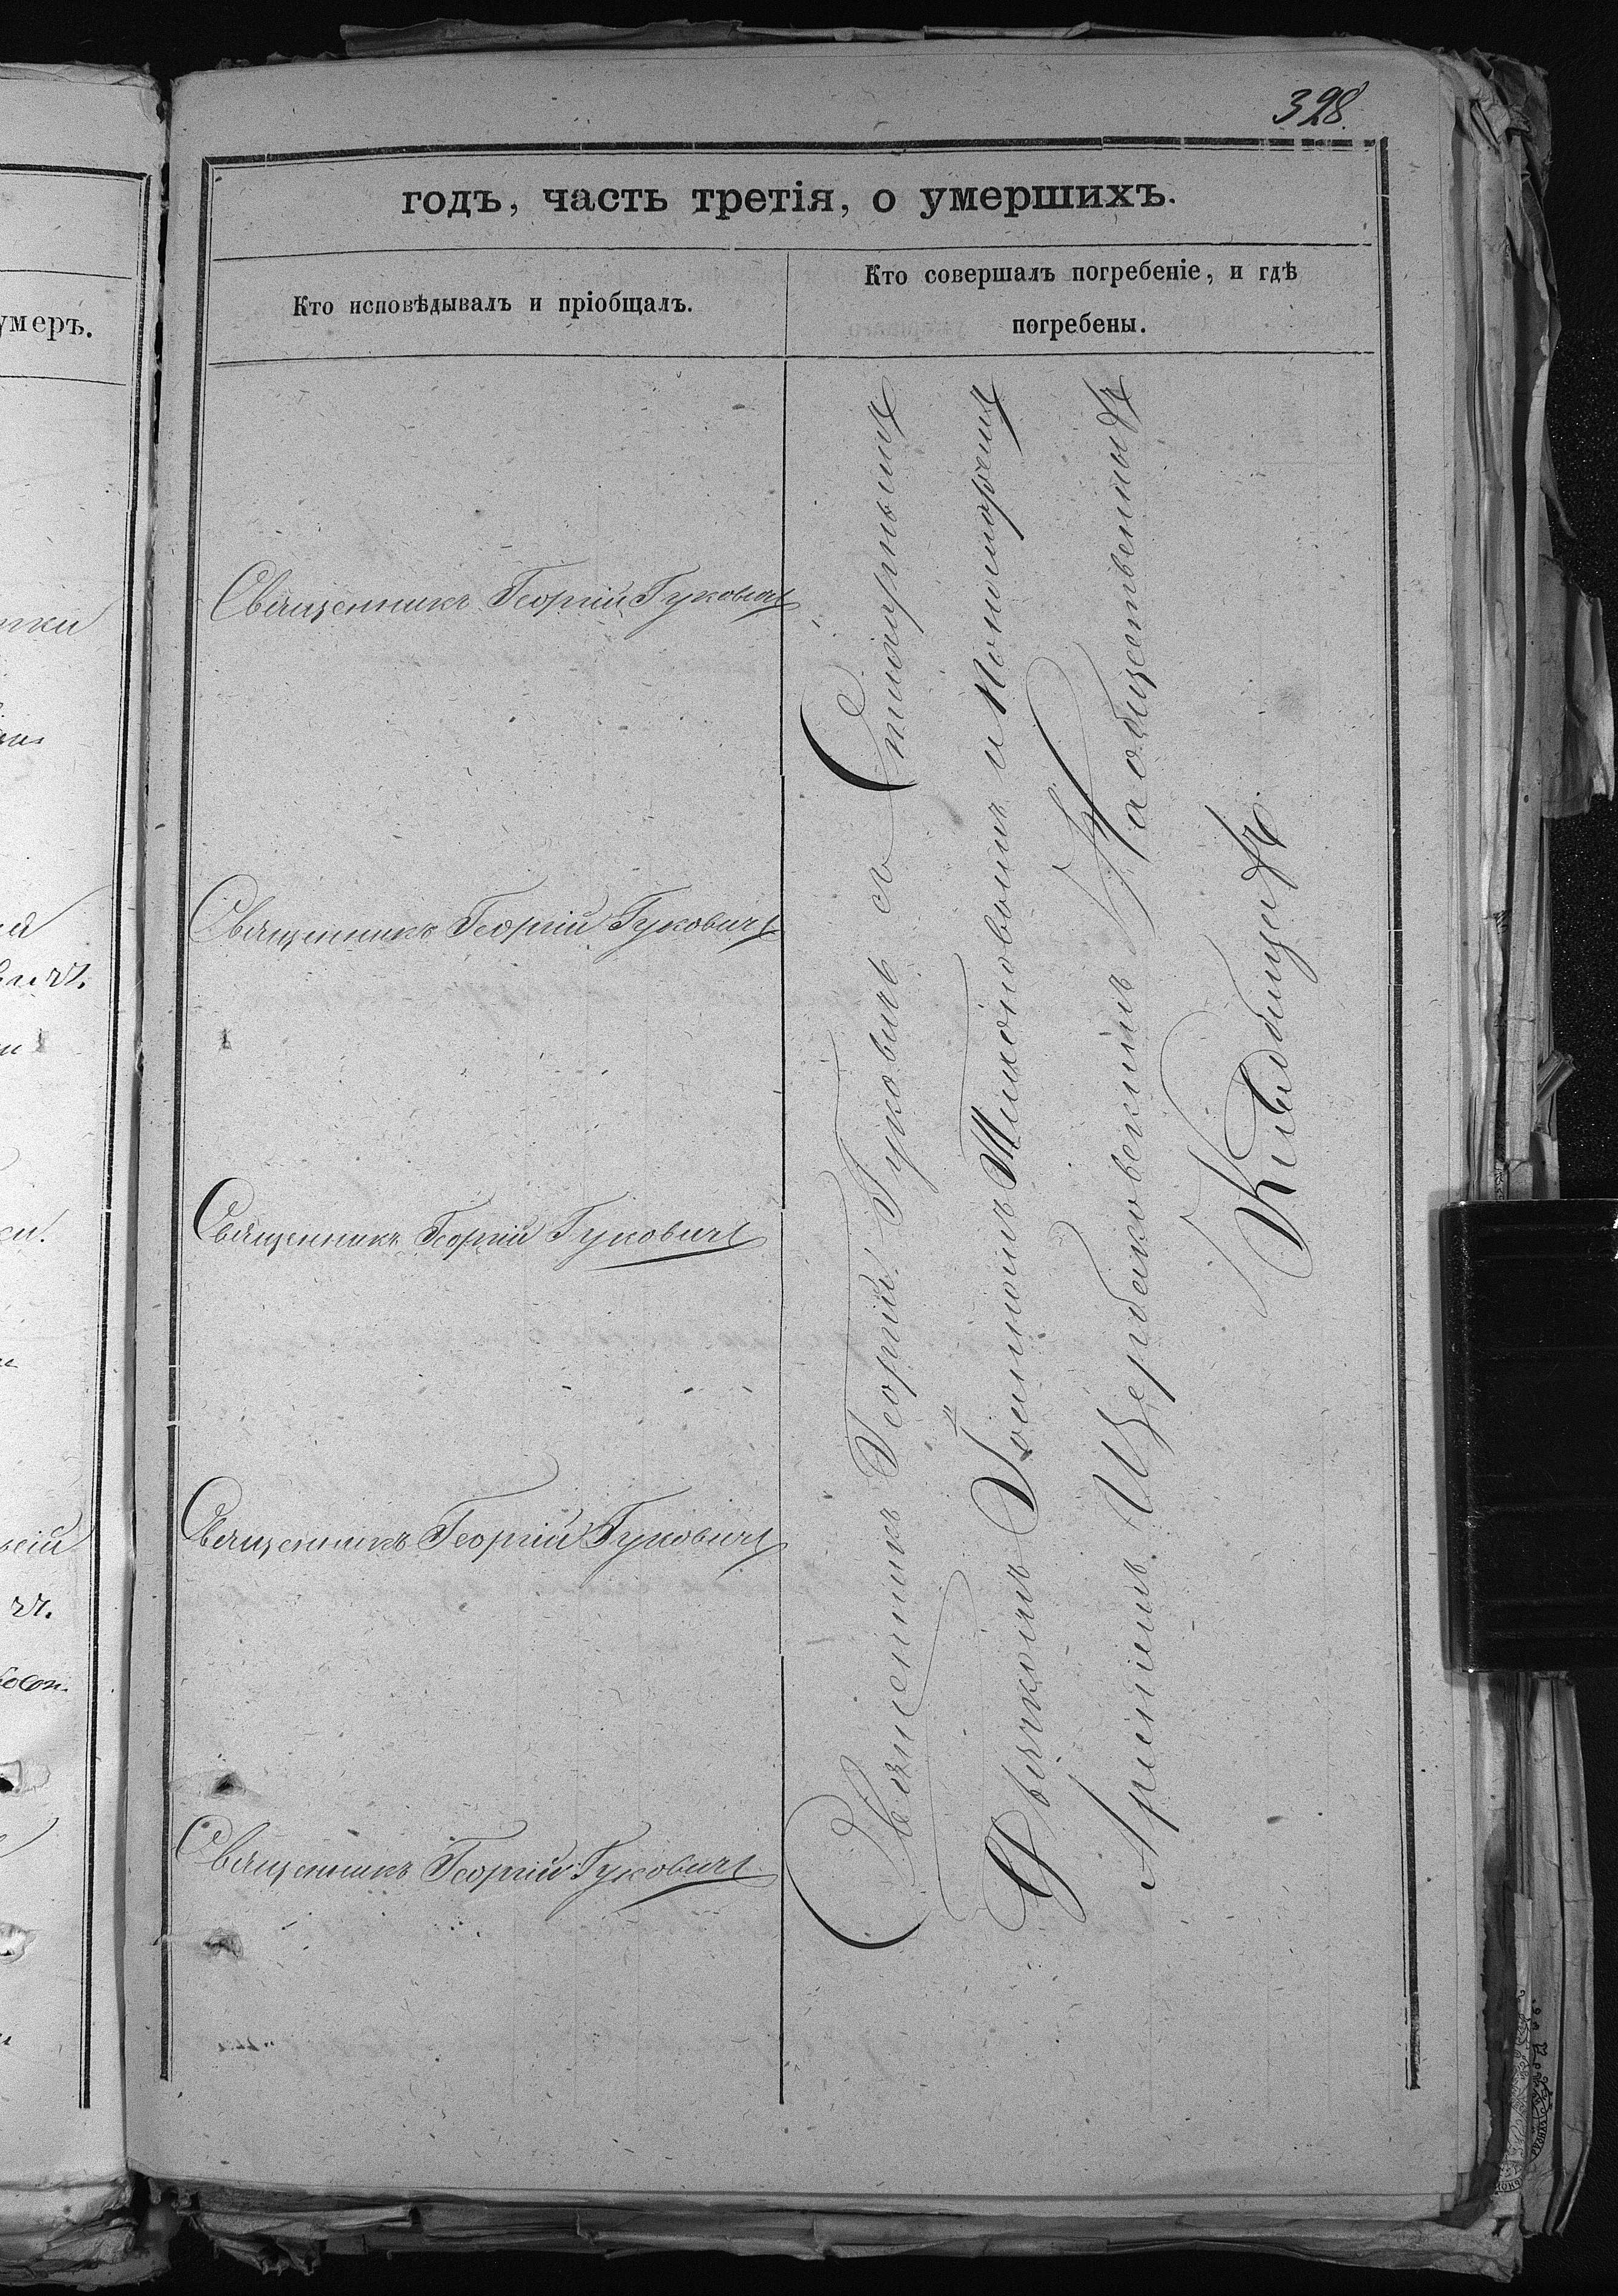 328.
годъ, часть третія, о умершихъ.
Кто исповѣдывалъ и пріобщалъ.
Кто совершалъ погребеніе, и гдѣ
погребены.
умеръ.
Священникъ Георгій Гуковичъ
Священникъ Георгій Гуковичъ
Священникъ Георгій Гуковичъ
Священникъ Георгій Гуковичъ
Священникъ Георгій Гуковичъ
Священникъ Георгій Гуковичъ съ Стихарнымъ
Дьячкомъ Іоанномъ Тихоновымъ и Пономоремъ
Арсеніемъ Щербаковскимъ На общественныхъ
Кладбищахъ